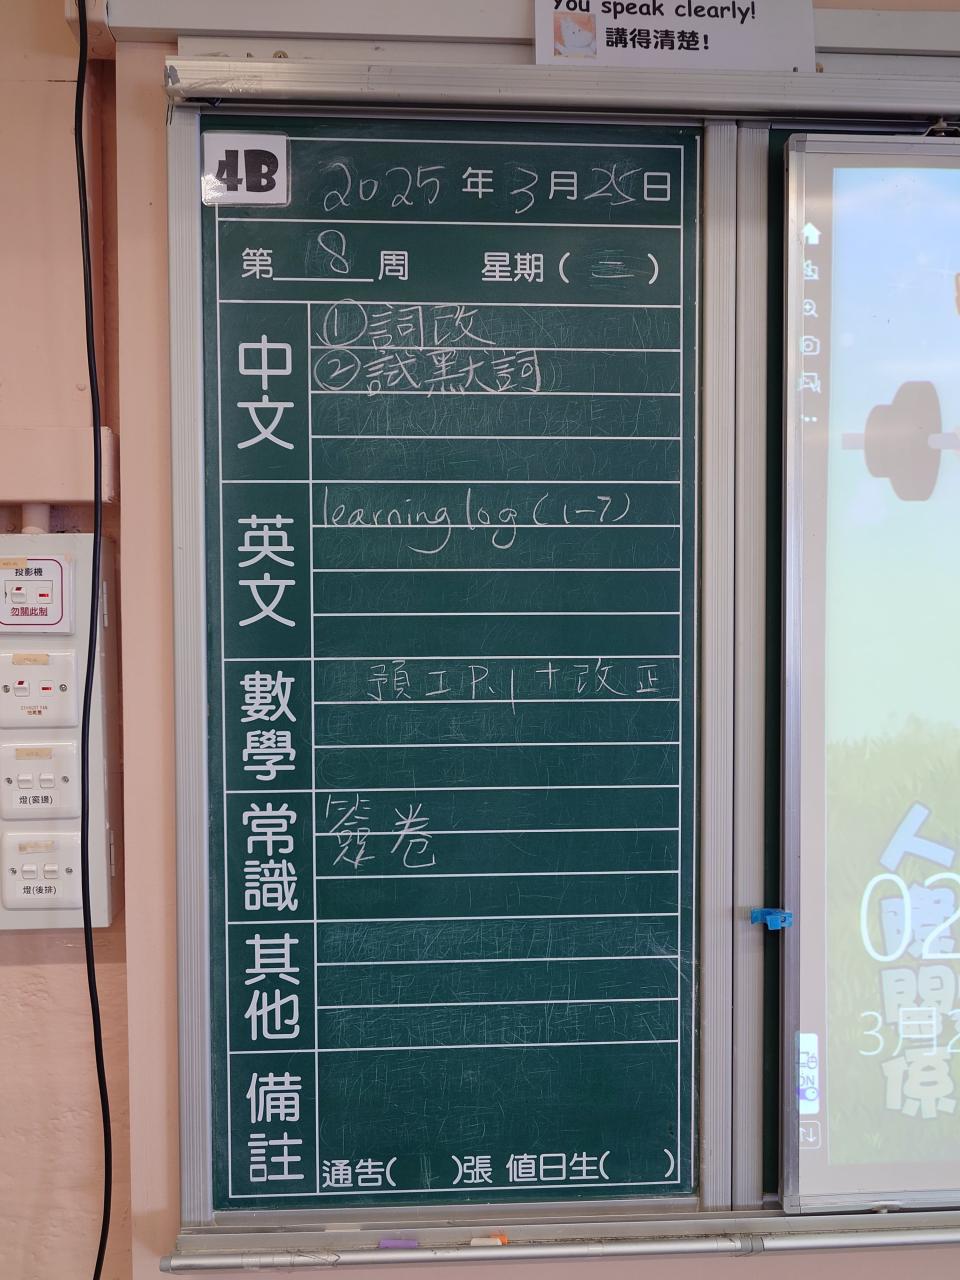 You speak clearly!
講得清楚!
4B
2025年3月25日
第8周 星期(二)
中文
①詞改
②試默詞
英文
learning log (1-7)
數學
預工P.1+改正
常識
簽卷
其他
備註
通告( )張 值日生( )
投影機
勿關此制
EXHAUST FAN
燈(窗邊)
燈(後排)
人際關係
02
3月2
ON